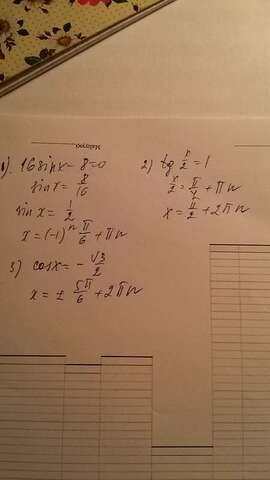 1). 16 sin x - 8 = 0
sin x = 8/16
sin x = 1/2
x = (-1)ⁿ π/6 + πn
2) tg x/2 = 1
x/2 = π/4 + πn
x = π/2 + 2πn
3) cos x = - √3/2
x = ± 5π/6 + 2πn